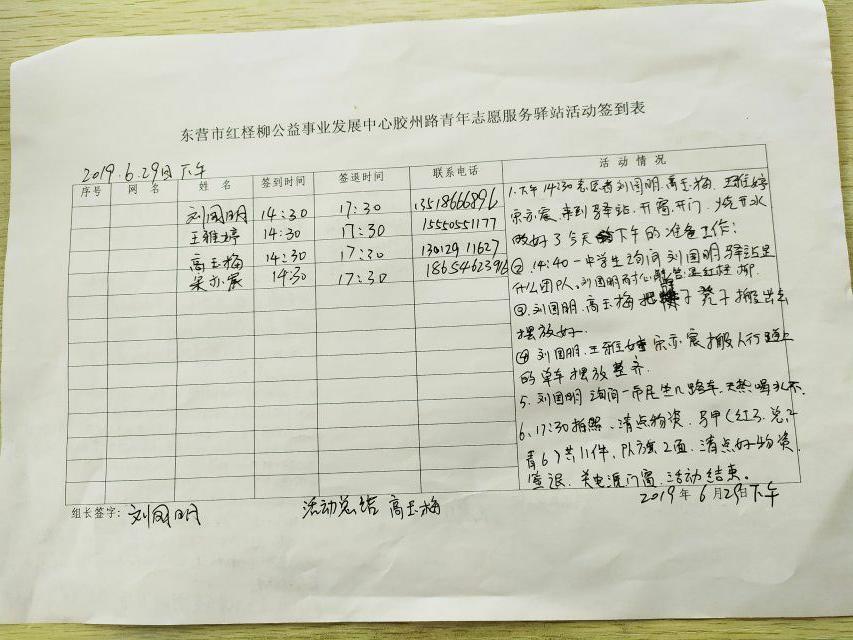 东营市红柽柳公益事业发展中心胶州路青年志愿服务驿站活动签到表
2019.6.29日下午
序号 网名 姓名 签到时间 签退时间 联系电话 活动情况
刘国明 14:30 17:30 13518666896
王雅婷 14:30 17:30 15550551177
高玉梅 14:30 17:30 13012911627
宋亦宸 14:30 17:30
1.下午14:30志愿者刘国明.高玉梅.王雅婷
宋亦宸,来到驿站.开窗.开门.烧开水
做好了今天下午的准备工作:
②.14:40一中学生询问刘国明驿站是
什么团队.刘国明 是红柽柳.
③.刘国明.高玉梅把 子凳子搬出去
摆放好.
④刘国明.王雅婷宋亦宸把人行道上
的单车摆放整齐.
5.刘国明询问一市民坐几路车.天热喝水不.
6、17:30拍照、清点物资.马甲(红3.
青6)共11件,队旗2面.清点好物资
签退.关电源门窗.活动结束。
组长签字:刘国明 活动总结 高玉梅 2019年6月29日下午